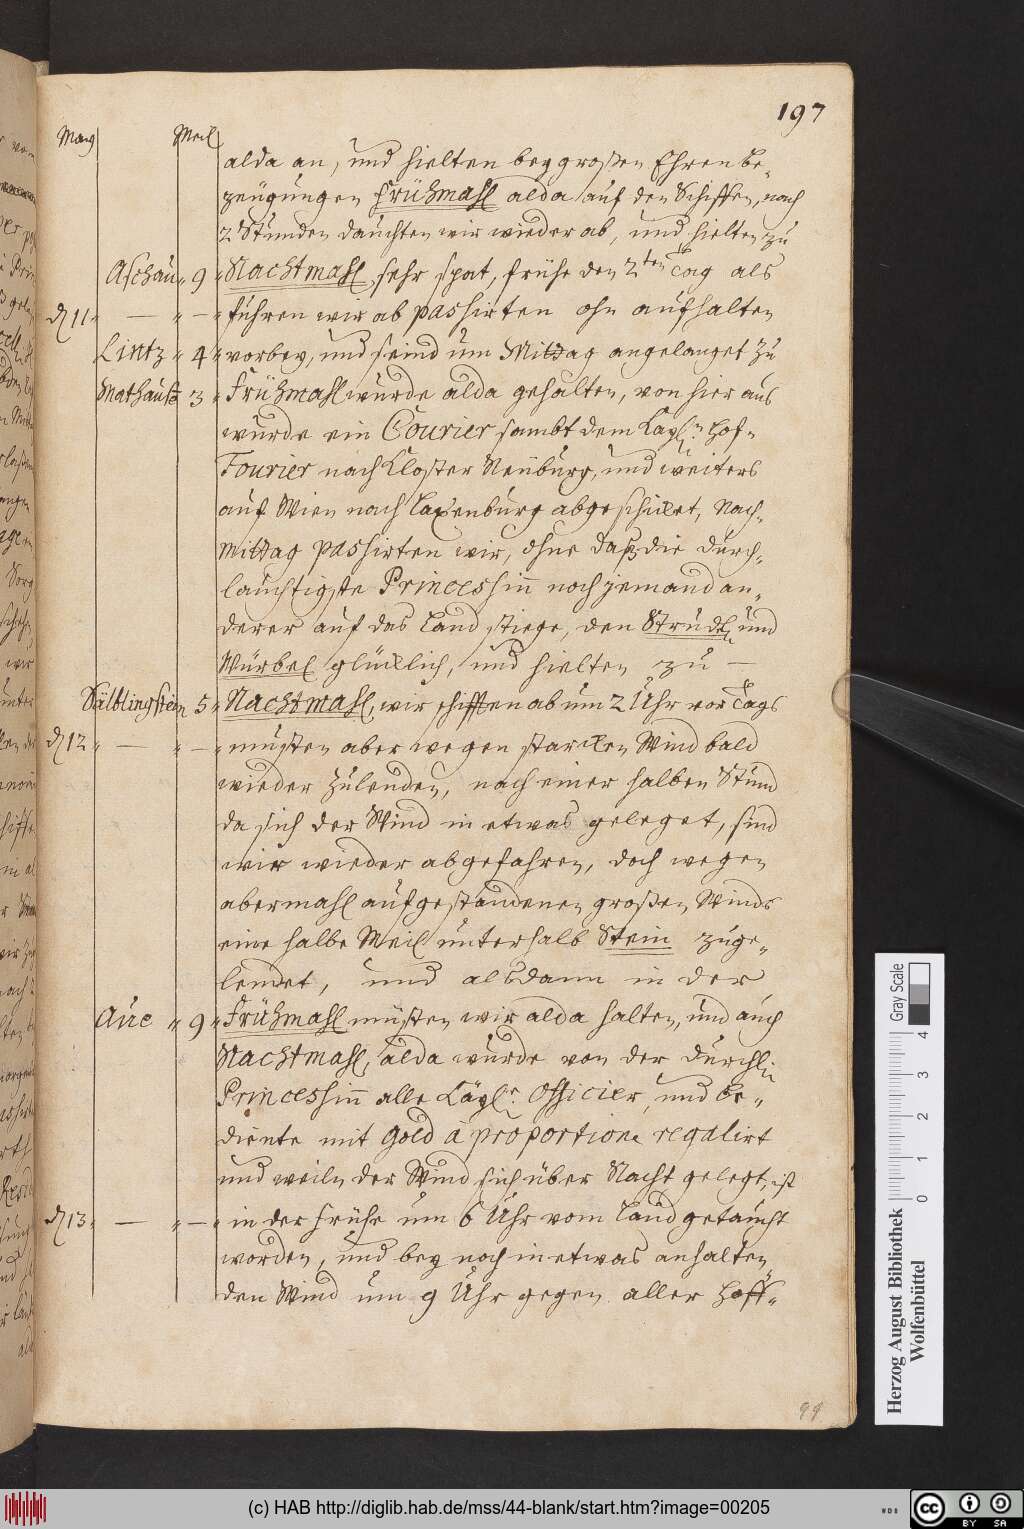 197
May Meil
alda an, und hielten bey großen Ehren be-
zeügungen Frühmahl alda auf den Schiffen, nach
2 Stunden dauchten wir wieder ab, und hielten zu
Aschau " 9 " Nachtmahl, sehr spat, frühe den 2ten Tag als
d 11 " — " — " führen wir ab passirten ohn aufhalten
Lintz " 4 " vorbey, und seind um Mittag angelanget zu
Mathausē 3 " Frühmahl wurde alda gehalten, von hier aus
wurde ein Courier sambt dem Kayl:n Hof-
Fourier nach Kloster Neüburg, und weiters
auf Wien nach Laxenburg abgeschickt, Nach-
mittag passirten wir, ohne daß die durch-
lauchtigste Princessin noch jemand an-
derer auf das Land stiege, den Strudl und
Würbel glücklich, und hielten zu —
Sälblingstein 5 " Nachtmahl, wir schifften ab um 2 Uhr vor Tags
d 12 " — " — " musten aber wegen starcken Wind bald
wieder zulenden, nach einer halben Stund
da sich der Wind in etwas geleget, sind
wir wieder abgefahren, doch wegen
abermahl aufgestandenen großen Winds
eine halbe Meil unterhalb Stein zuge-
lendet, und alsdann in der
Aüe " 9 " Frühmahl musten wir alda halten, und auch
Nachtmahl, alda wurde von der Durchl:n
Princessin alle Käyl:r Officier, und be-
diente mit Gold à proportione regalirt
und weiln der Wind sich über Nacht gelegt, ist
d 13 " — " — " in der Frühe um 6 Uhr vom Land getaucht
worden, und bey noch in etwas anhalten-
den Wind um 9 Uhr gegen aller Hoff-
99
Herzog August Bibliothek
Wolfenbüttel
Gray Scale
0 1 2 3 4
(c) HAB http://diglib.hab.de/mss/44-blank/start.htm?image=00205
WDB
cc BY SA